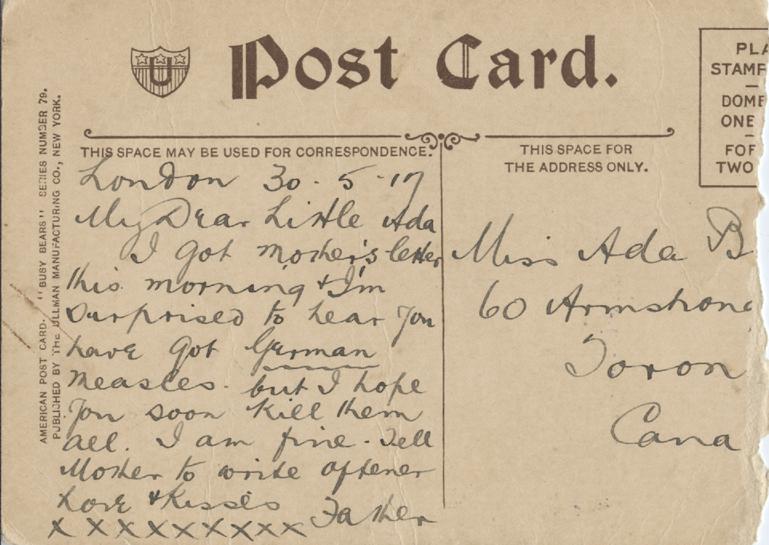 U
Post Card.
THIS SPACE MAY BE USED FOR CORRESPONDENCE.
London 30-5-17
My Dear Little Ada
I got mother's letter
this morning & I'm
surprised to hear you
have got German
measles. but I hope
you soon kill them
all. I am fine. Tell
Mother to write oftener
Love & Kisses Father
X X X X X X X X X
THIS SPACE FOR
THE ADDRESS ONLY.
Miss Ada B
60 Armstrong
Toron
Cana
PLA
STAMP
DOME
ONE
FOR
TWO
AMERICAN POST CARD. "BUSY BEARS" SERIES NUMBER 79.
PUBLISHED BY THE ULLMAN MANUFACTURING CO., NEW YORK.